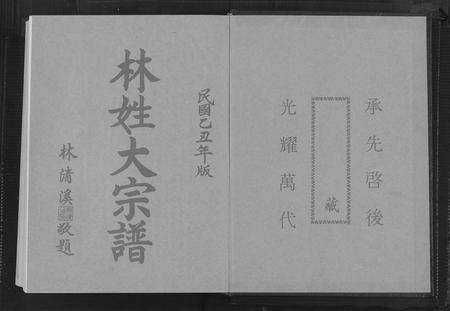 承先啓後
藏
光耀萬代
民國乙丑年版
林姓大宗譜
林清溪
敬題